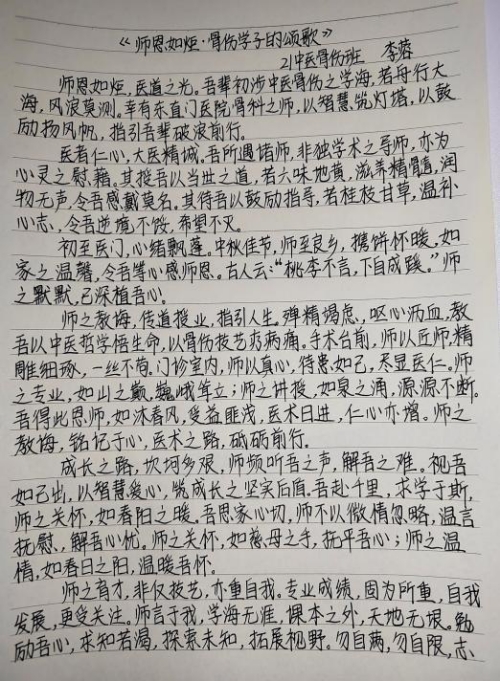 《师恩如炬·骨伤学子的颂歌》
21中医骨伤班 李蓉
师恩如炬,医道之光。吾辈初涉中医骨伤之学海,若舟行大
海,风浪莫测。幸有东直门医院骨科之师,以智慧筑灯塔,以鼓
励扬风帆,指引吾辈破浪前行。
医者仁心,大医精诚。吾所遇诸师,非独学术之导师,亦为
心灵之慰藉。其授吾以当世之道,若六味地黄,滋养精髓,润
物无声,令吾感戴莫名。其待吾以鼓励指导,若桂枝甘草,温补
心志,令吾逆境不馁,希望不灭。
初至医门,心绪飘蓬。中秋佳节,师至良乡,携饼怀暖,如
家之温馨,令吾等心感师恩。古人云:“桃李不言,下自成蹊。”师
之默默,已深植吾心。
师之教诲,传道授业,指引人生。殚精竭虑,呕心沥血,教
吾以中医哲学悟生命,以骨伤技艺疗病痛。手术台前,师以匠师,精
雕细琢,一丝不苟。门诊室内,师以真心,待患如己,尽显医仁。师
之专业,如山之巅,巍峨耸立;师之讲授,如泉之涌,源源不断。
吾得此恩师,如沐春风,受益匪浅,医术日进,仁心亦增。师之
教诲,铭记于心,医术之路,砥砺前行。
成长之路,坎坷多艰,师倾听吾之声,解吾之难。视吾
如己出,以智慧爱心,筑成长之坚实后盾。吾赴千里,求学于斯,
师之关怀,如春阳之暖。吾思家心切,师不以微情忽略,温言
抚慰,解吾心忧。师之关怀,如慈母之手,抚平吾心;师之温
情,如春日之阳,温暖吾怀。
师之育才,非仅技艺,亦重自我。专业成绩,固为所重,自我
发展,更受关注。师言于我,学海无涯,课本之外,天地无垠。勉
励吾心,求知若渴,探索未知,拓展视野。勿自满,勿自限,志、